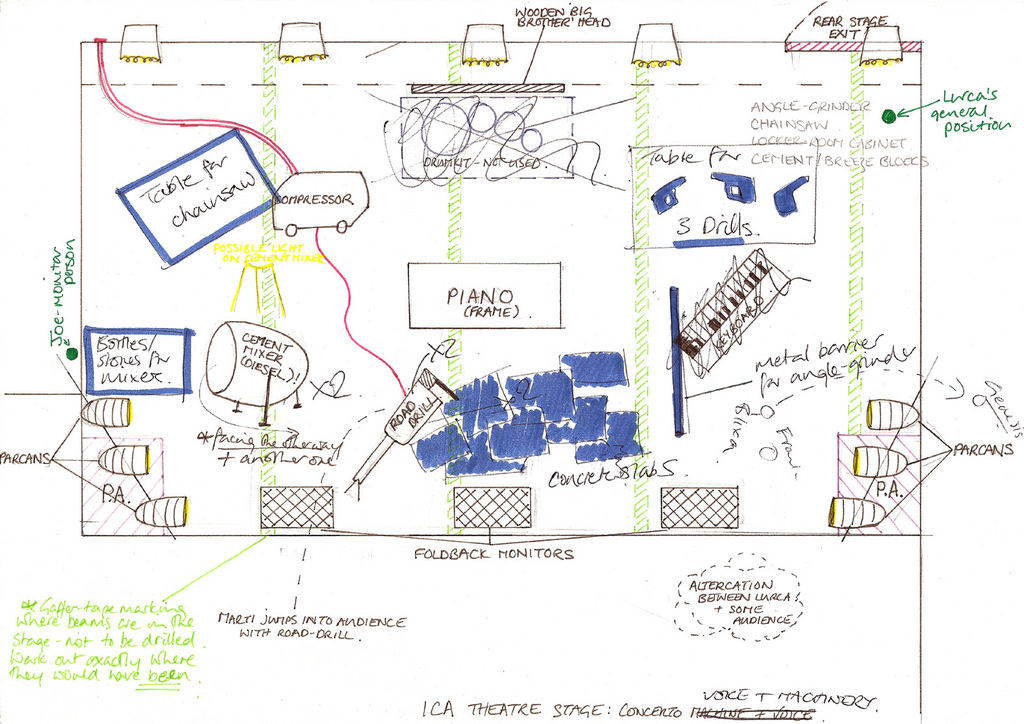 WOODEN 'BIG
BROTHER' HEAD
REAR STAGE
EXIT
Lurca's
general
position
ANGLE-GRINDER
CHAINSAW
LOCKER-ROOM CABINET
CEMENT/BREEZE BLOCKS
DRUMKIT - NOT USED
Table for
3 Drills.
Table for
chainsaw
COMPRESSOR
POSSIBLE LIGHT
ON CEMENT MIXER
Joe-monitor
person
PIANO
(FRAME)
KEYBOARD
Bottles/
stones for
mixer.
CEMENT
MIXER
(DIESEL)!
X2
X2
X2
ROAD
DRILL
metal barrier
for angle-grinder
Genesis
Blixa
Frani
* facing the other way
+ another one
Concrete slabs.
PARCANS
P.A.
PARCANS
P.A.
FOLDBACK MONITORS
* Gaffer-tape marking
where beams are in the
stage - not to be drilled.
Work out exactly where
they would have been
MARTI JUMPS INTO AUDIENCE
WITH ROAD-DRILL.
ALTERCATION
BETWEEN LURCA!
+ SOME
AUDIENCE
VOICE + MACHINERY.
ICA THEATRE STAGE: CONCERTO MACHINE + VOICE